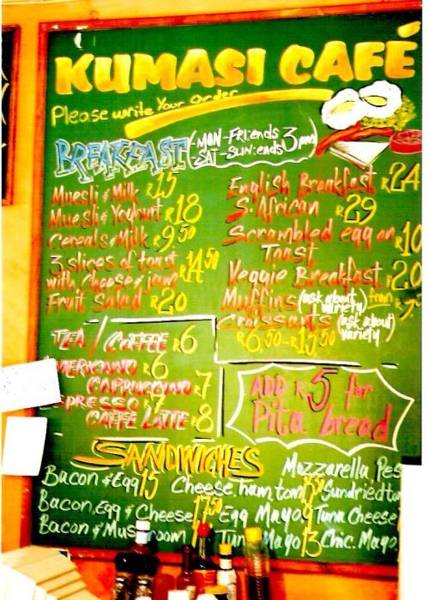 KUMASI CAFÉ
Please write Your order
BREAKFAST (MON-FRI:ends 3pm
SAT-SUN:ends
Muesli & Milk R15
Muesli & Yoghurt R18
Cereal & Milk R9,50
3 slices of toast
with cheese & jam R14,50
Fruit Salad R20
English Breakfast R24
S'African R29
Scrambled egg on
Toast R10
Veggie Breakfast R20
Muffins (ask about variety) from
Croissants (ask about variety)
R6,50-R15,50
TEA / COFFEE R6
MERICANO R6
CAPPUCCINO R7
SPRESSO R7
CAFFE LATTE R8
ADD R5 for
Pita bread
SANDWICHES
Bacon & Egg 15
Bacon, Egg & Cheese 17,50
Bacon & Mus room
Cheese, ham, tom
Egg Mayo 9
Mayo 13
Mozzarella Pes
Sundried to
Tuna Cheese
Chic. Mayo